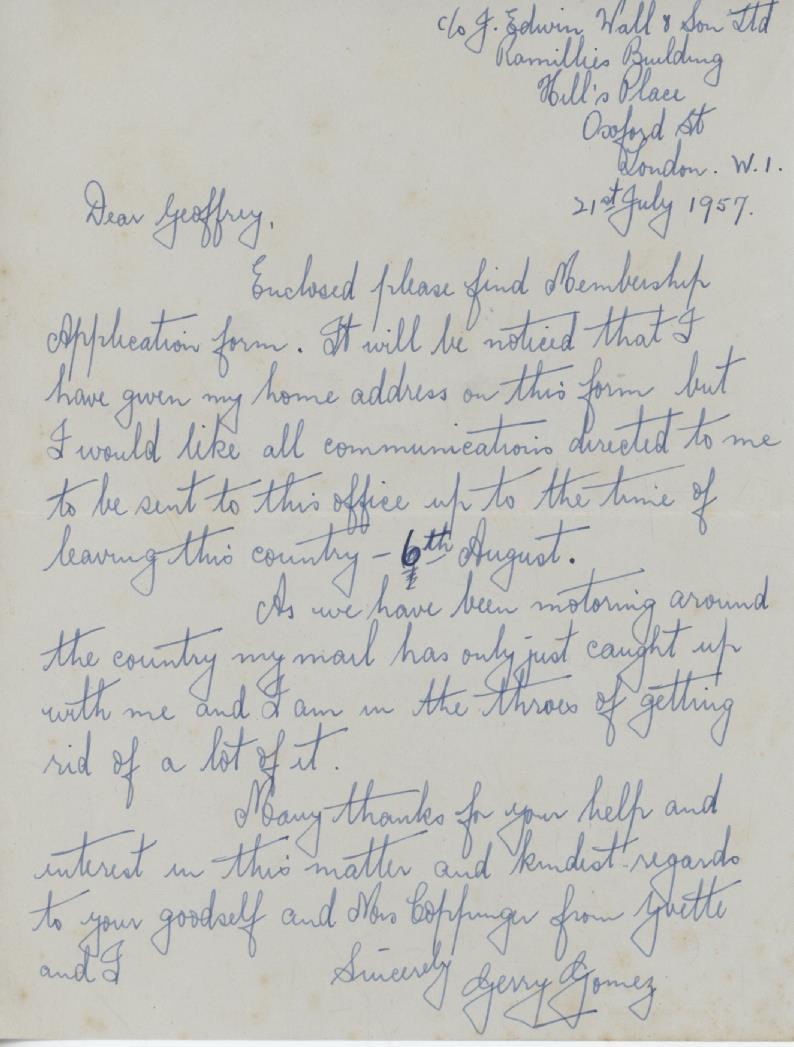 c/o J. Edwin Wall & Son Ltd
Ramillies Building
Hill's Place
Oxford St
London. W.1.
21st July 1957.
Dear Geoffrey,
Enclosed please find Membership
Application form. It will be noticed that I
have given my home address on this form but
I would like all communications directed to me
to be sent to this office up to the time of
leaving this country – 6th August.
As we have been motoring around
the country my mail has only just caught up
with me and I am in the throes of getting
rid of a lot of it.
Many thanks for your help and
interest in this matter and kindest regards
to your goodself and Mrs Coppinger from Yvette
and I
Sincerely Gerry Gomez